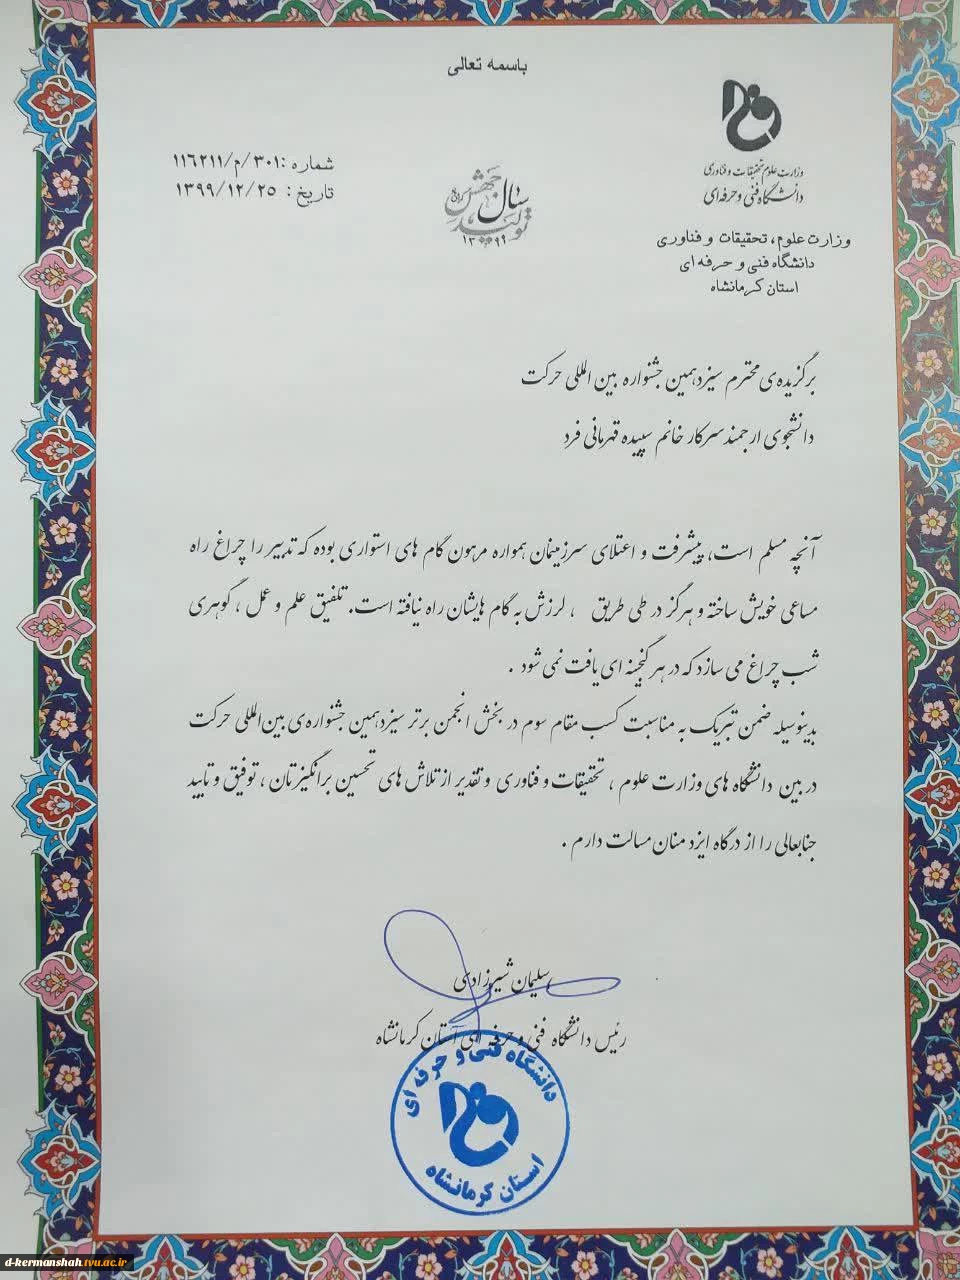 باسمه تعالی
وزارت علوم تحقیقات و فناوری
دانشگاه فنی و حرفه‌ای
شماره :۳۰۱/م/۱۱۶۲۱۱
تاریخ : ۱۳۹۹/۱۲/۲۵
سال جهش تولید
۱۳۹۹
وزارت علوم، تحقیقات و فناوری
دانشگاه فنی و حرفه ای
استان کرمانشاه
برگزیده‌ی محترم سیزدهمین جشنواره بین المللی حرکت
دانشجوی ارجمند سرکار خانم سپیده قهرمانی فرد
آنچه مسلم است، پیشرفت و اعتلای سرزمینمان همواره مرهون گام های استواری بوده که تدبیر را چراغ راه
مساعی خویش ساخته و هرگز در طی طریق ، لرزش به گام هایشان راه نیافته است. تلفیق علم و عمل ، گوهری
شب چراغ می سازد که در هر گنجینه ای یافت نمی شود .
بدینوسیله ضمن تبریک به مناسبت کسب مقام سوم در بخش انجمن برتر سیزدهمین جشنواره‌ی بین‌المللی حرکت
در بین دانشگاه های وزارت علوم ، تحقیقات و فناوری و تقدیر از تلاش های تحسین برانگیزتان ، توفیق و تایید
جنابعالی را از درگاه ایزد منان مسالت دارم .
سلیمان شیرزادی
رئیس دانشگاه فنی و حرفه ای استان کرمانشاه
دانشگاه فنی و حرفه ای
استان کرمانشاه
d-kermanshah.tvu.ac.ir